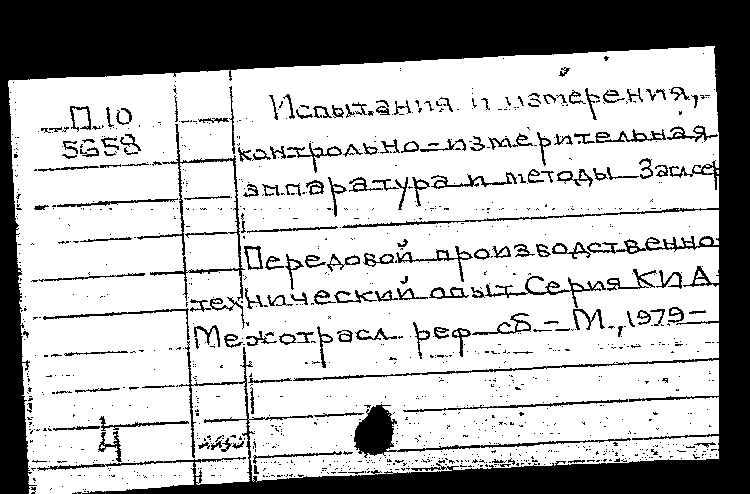 П.10
5658
Испытания и измерения,
контрольно-измерительная
аппаратура и методы
Передовой производственно
технический опыт. Серия КИА.
Межотрасл. реф. сб. – М., 1979 –
4